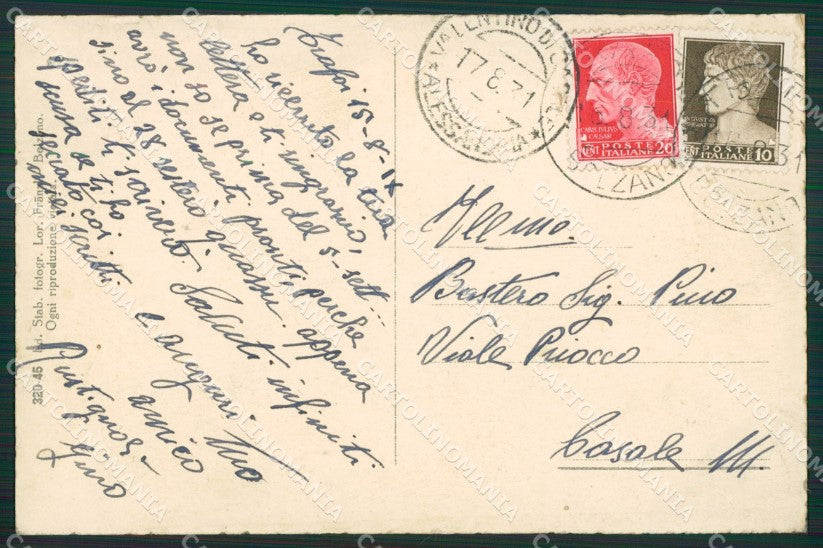 Trafoi 15-8-IX
ho ricevuto la tua
lettera e ti ringrazio,
non so se prima del 5-sett...
avrò i documenti pronti, perché
sino al 28 resterò quassù. appena
spediti ti scriverò. Saluti infiniti
scusa se ti ho e auguri tuo
seccato coi amico
miei scritti
Gino
320-45 Ed. Stab. fotogr. Lor. Fränzl, Bolzano.
Ogni riproduzione vietata.
VALENTINO DI
17.8.31
ALESSANDRIA
CAIVS IVLIVS
CAESAR
CENT POSTE ITALIANE 20
CENT POSTE ITALIANE 10
8.31
BOLZANO
Ill.mo.
Bastero Sig. Pino
Viale Priocco
Casale M.
CARTOLINOMANIA